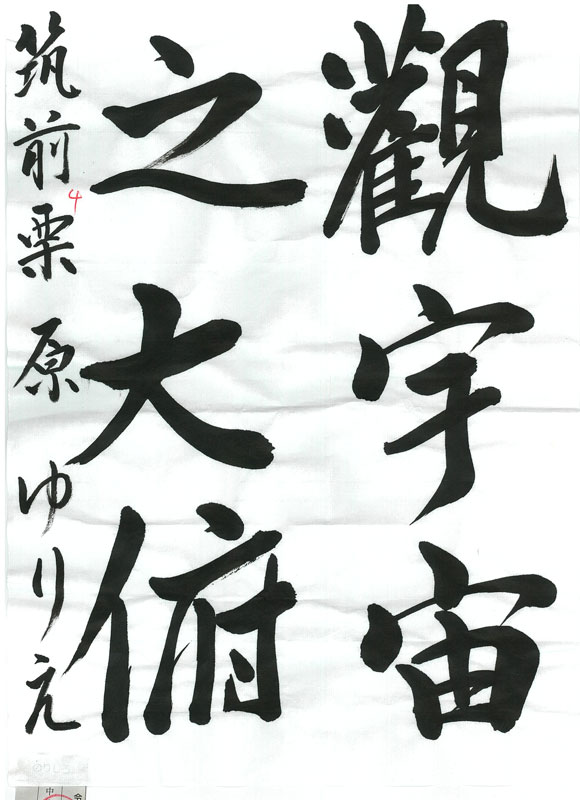 觀宇宙
之大俯
筑前栗原ゆりえ
4